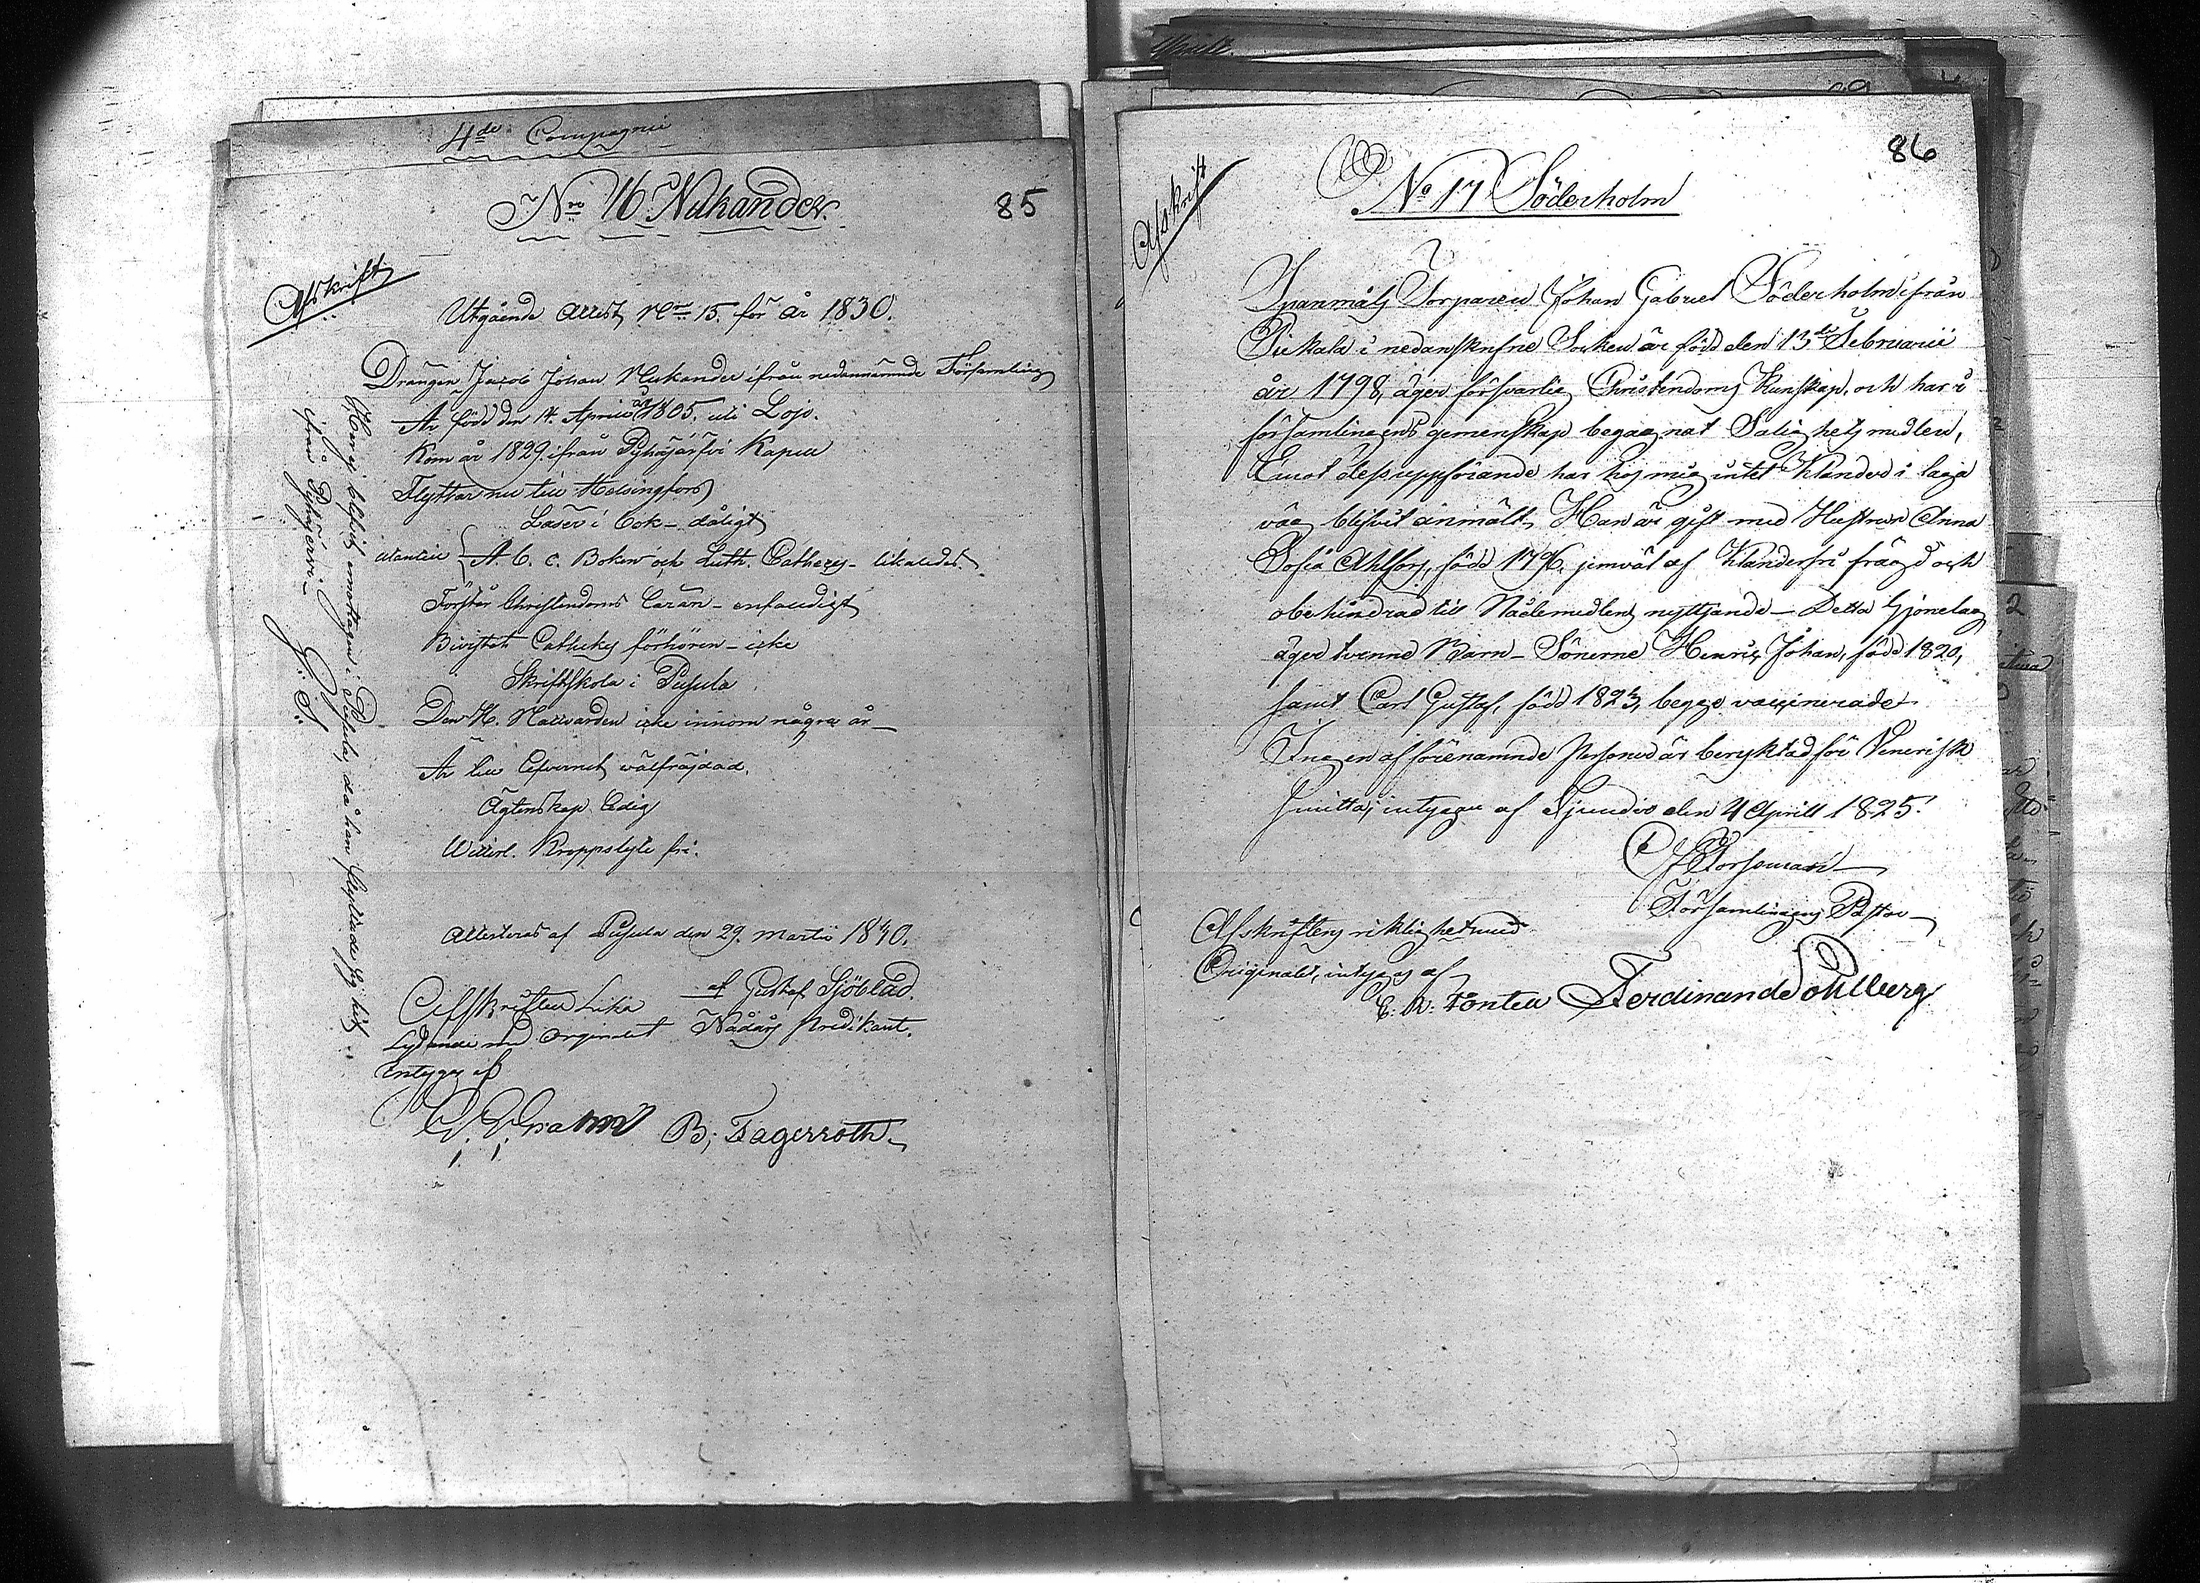 4de Compagnie
Nro 16 Nukander.
85
Afskrift
Utgående Attest No 15. för år 1830.
Drängen Jacob Johan Nukander ifrån nedannämnde Församling
Är född den 14. Aprill år 1805. uti Lojo.
Kom år 1829 ifrån Pyhäjärfvi Kapell
Flyttar nu till Helsingfors
Läser i bok - dåligt
utantill A. b. c. Boken och Luth. Cathezes - likaledes.
Förstår Christendoms läran - enfaldigt
Bivistat Cathekes förhören - icke
Skriftskola i Pusula
Den H. Nattvarden icke innom några år -
Är till lefvernet välfräjdad.
Ägtenskap ledig
Witterl. Kroppslyte fri.
Attesteras af Pusula den 29. Martii 1830.
Gustaf Sjöblad.
Nådårs Predikant.
Afskriften Lika
Lydande med Orginalet
Intyga af
B; Fagerroth
blifvit emottagen i Pusula, då han flyttade sig hit
ifrån Pyhäjervi -
G: S:
86
Afskrift
No 17 Söderholm
Torparen Johan Gabriel Söderholm ifrån
Pickala i nedanskrifne Socken är född den 13de Februarii
år 1798, äger försvarlig Christendoms Kunskap, och har i
församlingens gemenskap begagnat Salighets medlen,
Emot dess uppförande har hos mig intet Klander i laga
väg blifvit anmält, Han är gift med Hustrun Anna
Sofia Ahlfors, född 1796, jemväl af Klanderfri frägd och
obehindrad till Nådemedlens nyttjande - Detta Hjonelag
äger tvenne Barn - Sönerne Henric Johan, född 1820,
samt Carl Gustaf, född 1823, begge vaccinerade
Ingen af förenämnde Personer är beryktad för Venerisk
smitta; intygar af Sjundeo den 4 Aprill 1825.
Forssman
Församlingens Pastor
Afskriftens riktighet med
Originalet, intygas af
E. W. Fontell Ferdinand Sohlberg